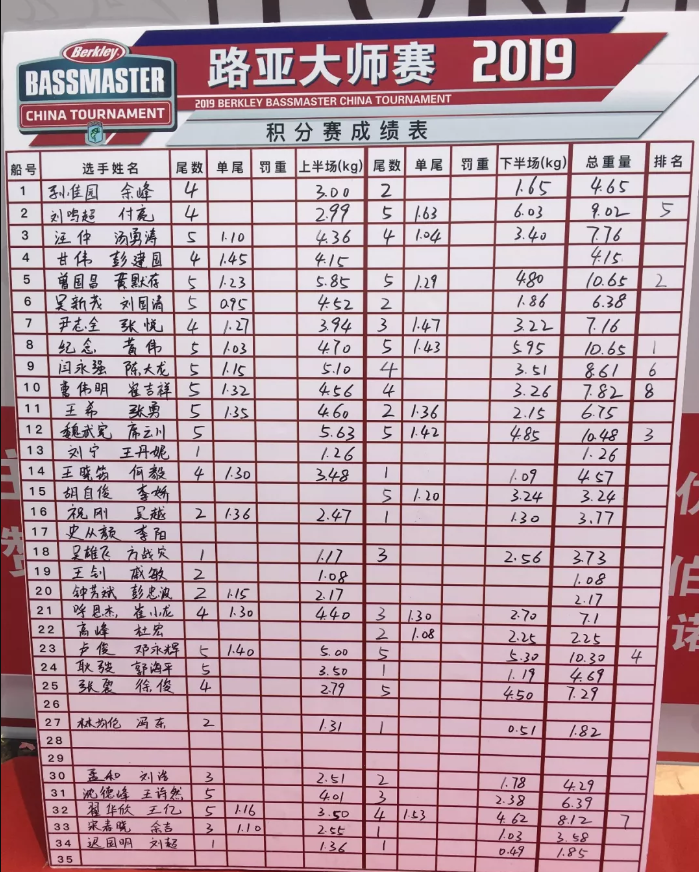 Berkley
BASSMASTER
CHINA TOURNAMENT
路亚大师赛 2019
2019 BERKLEY BASSMASTER CHINA TOURNAMENT
积分赛成绩表
船号 选手姓名 尾数 单尾 罚重 上半场(kg) 尾数 单尾 罚重 下半场(kg) 总重量 排名
1 孙佳园 余峰 4 3.00 2 1.65 4.65
2 刘鸣超 付亮 4 2.99 5 1.63 6.03 9.02 5
3 汪仲 汤勇涛 5 1.10 4.36 4 1.04 3.40 7.76
4 甘伟 彭建国 4 1.45 4.15 4.15
5 曾国昌 黄默存 5 1.23 5.85 5 1.29 4.80 10.65 2
6 吴新茂 刘国涛 5 0.95 4.52 2 1.86 6.38
7 尹志全 张悦 4 1.27 3.94 3 1.47 3.22 7.16
8 纪念 黄伟 5 1.03 4.70 5 1.43 5.95 10.65 1
9 闫永强 陈大龙 5 1.15 5.10 4 3.51 8.61 6
10 曹伟明 崔吉祥 5 1.32 4.56 4 3.26 7.82 8
11 王希 张勇 5 1.35 4.60 2 1.36 2.15 6.75
12 魏武宪 席云川 5 5.63 5 1.42 4.85 10.48 3
13 刘宁 王丹妮 1 1.26 1.26
14 王晓筠 何毅 4 1.30 3.48 1 1.09 4.57
15 胡自俊 李娇 5 1.20 3.24 3.24
16 祝刚 吴越 2 1.36 2.47 1 1.30 3.77
17 史从颜 李阳
18 吴雄飞 方战灾 1 1.17 3 2.56 3.73
19 王剑 戚敏 2 1.08 1.08
20 钟芳斌 彭忠波 2 1.15 2.17 2.17
21 恩杰 崔小龙 4 1.30 4.40 3 1.30 2.70 7.1
22 高峰 杜宏 2 1.08 2.25 2.25
23 卢俊 邓永辉 5 1.40 5.00 5 5.30 10.30 4
24 耿骏 郭海平 5 3.50 1 1.19 4.69
25 张震 徐俊 4 2.79 5 4.50 7.29
26
27 林均伦 冯东 2 1.31 1 0.51 1.82
28
29
30 孟和 刘浩 3 2.51 2 1.78 4.29
31 沈德峰 王诗然 5 4.01 3 2.38 6.39
32 翟华欣 王亿 5 1.16 3.50 4 1.53 4.62 8.12 7
33 宋春晓 余吉 3 1.10 2.55 1 1.03 3.58
34 迟国明 刘超 1 1.36 1 0.49 1.85
35